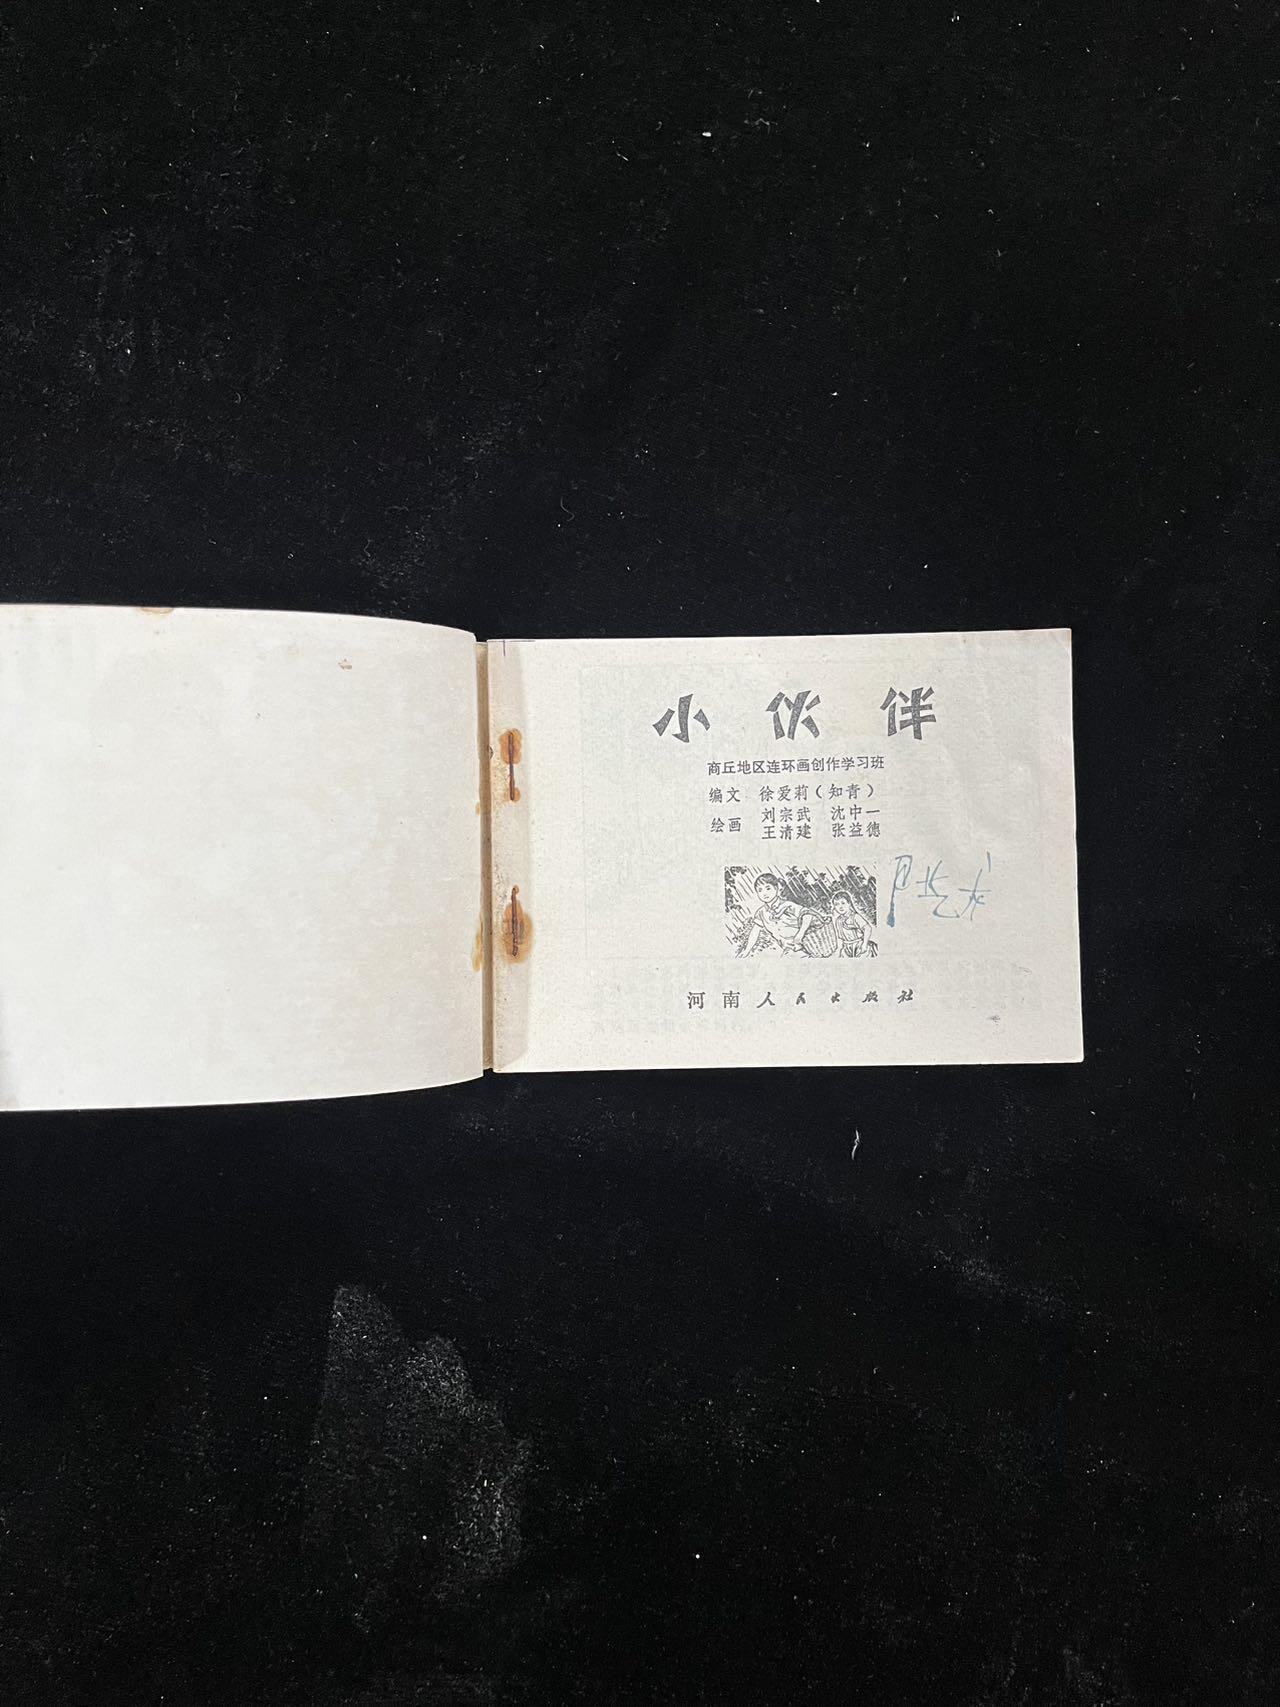 小伙伴
商丘地区连环画创作学习班
编文 徐爱莉（知青）
绘画 刘宗武 沈中一
王清建 张益德
河南人民出版社